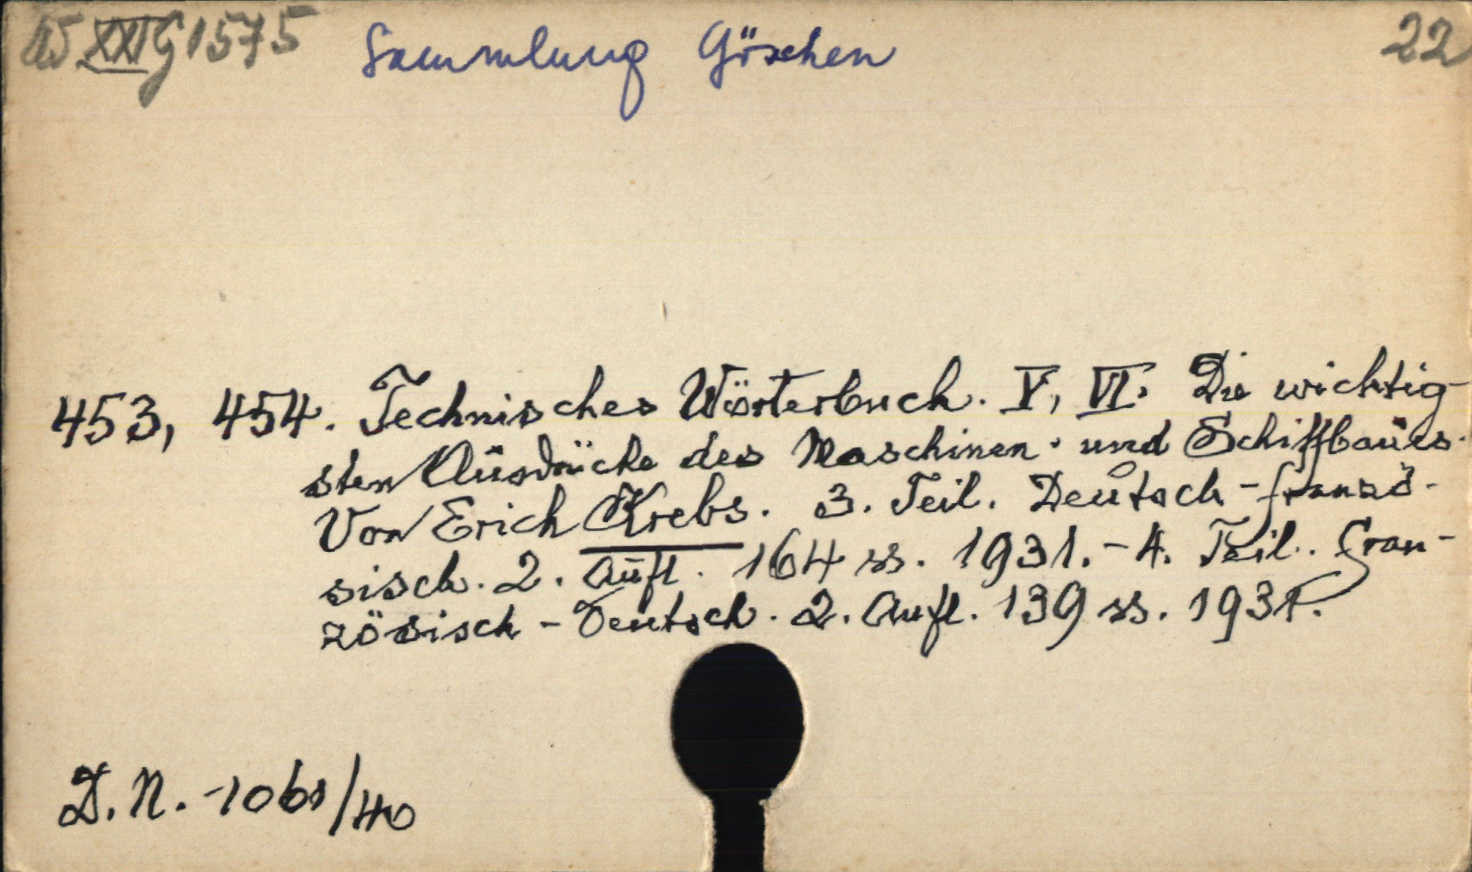 XXIG1575 Sammlung Göschen 22
453, 454. Technisches Wörterbuch. V, VI. Die wichtig-
sten Ausdrücke des Maschinen- und Schiffbaues.
Von Erich Krebs. 3. Teil. Deutsch-franzö-
sisch. 2. Aufl. 164 ss. 1931. - 4. Teil. Fran-
zösisch - Deutsch. 2. Aufl. 139 ss. 1931.
D. N. -1061/40